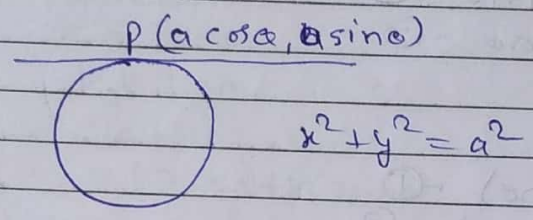 P(a cosθ, a sinθ)
x² + y² = a²